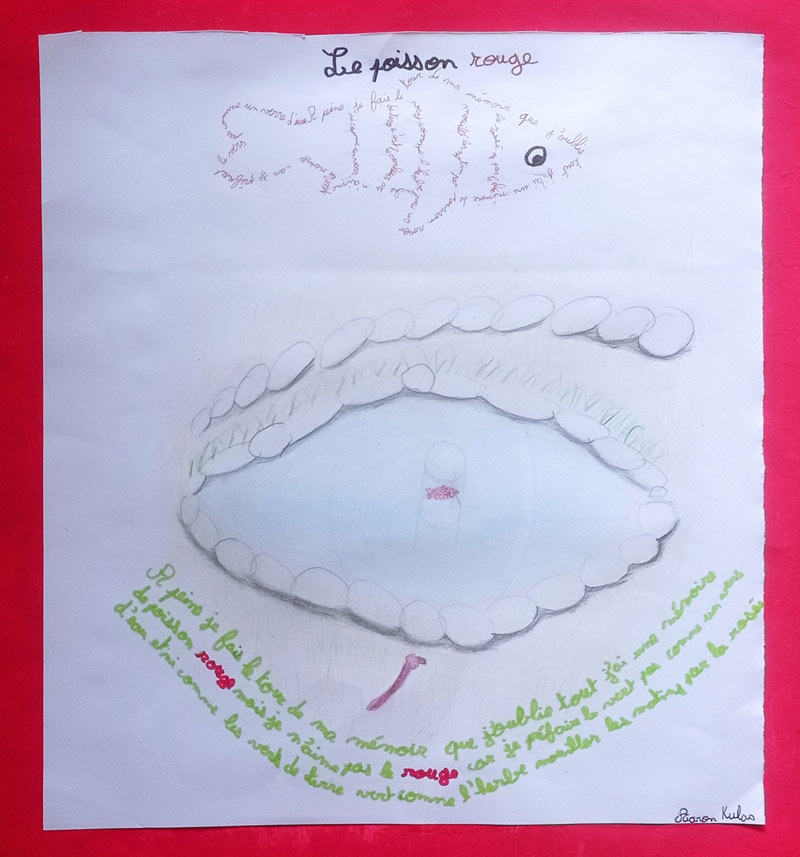 Le poisson rouge
A peine je fais le tour de ma mémoir que j'oublie tout j'ai une mémoire de poisson rouge
A peine je fais le tour de ma mémoir que j'oublie tout j'ai une mémoire
de poisson rouge mais je n'aime pas le rouge car je préfaire le vert pas comme un vers
d'eau et ni comme les vers de terre vert comme l'herbe mouiller les matins par la rosée
Aaron Kulas